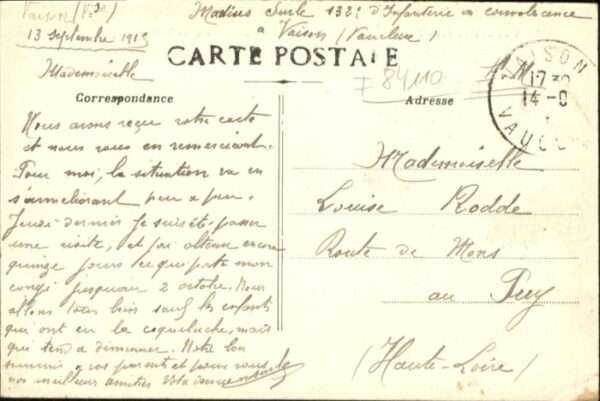 Vaison
13 Septembre 1915
132e d'Infanterie en convalescence
à Vaison (Vaucluse)
CARTE POSTALE
F 84110
Correspondance
Adresse
VAISON
17 30
14 - 9
VAUCLUSE
Mademoiselle
Nous avons reçu votre carte
et nous vous en remercions.
Pour moi, la situation va en
s'améliorant peu a peu.
Jeudi dernier je suis été passer
une visite, et j'ai obtenu encore
quinze jours ce qui porte mon
congé jusquau 2 octobre. Nous
allons tous bien sauf les enfants
qui ont eu la coqueluche, mais
qui tend a diminuer. Notre bon
souvenir a vos parents et pour vous
nos meilleurs amitiés
Mademoiselle
Louise Rodde
Route de Mons
au Puy
(Haute-Loire)